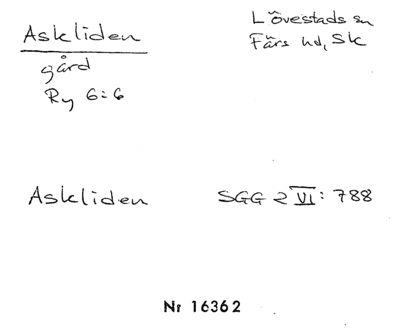 Askliden
gård
Ry 6:6
Lövestads sn
Färs hd, Sk
Askliden SGG 2 VI: 788
Nr 16362